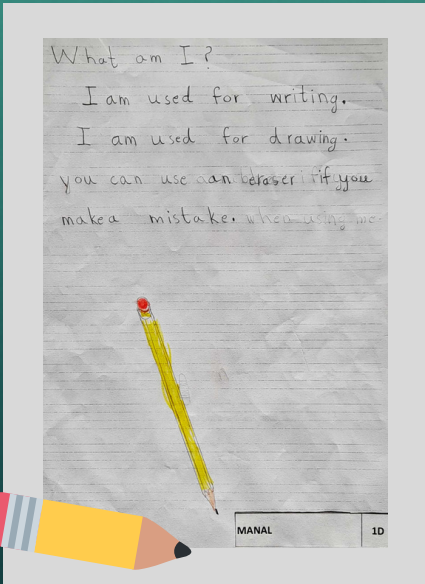 What am I?
I am used for writing.
I am used for drawing.
you can use an eraser if you
make a mistake. when using me.
MANAL 1D